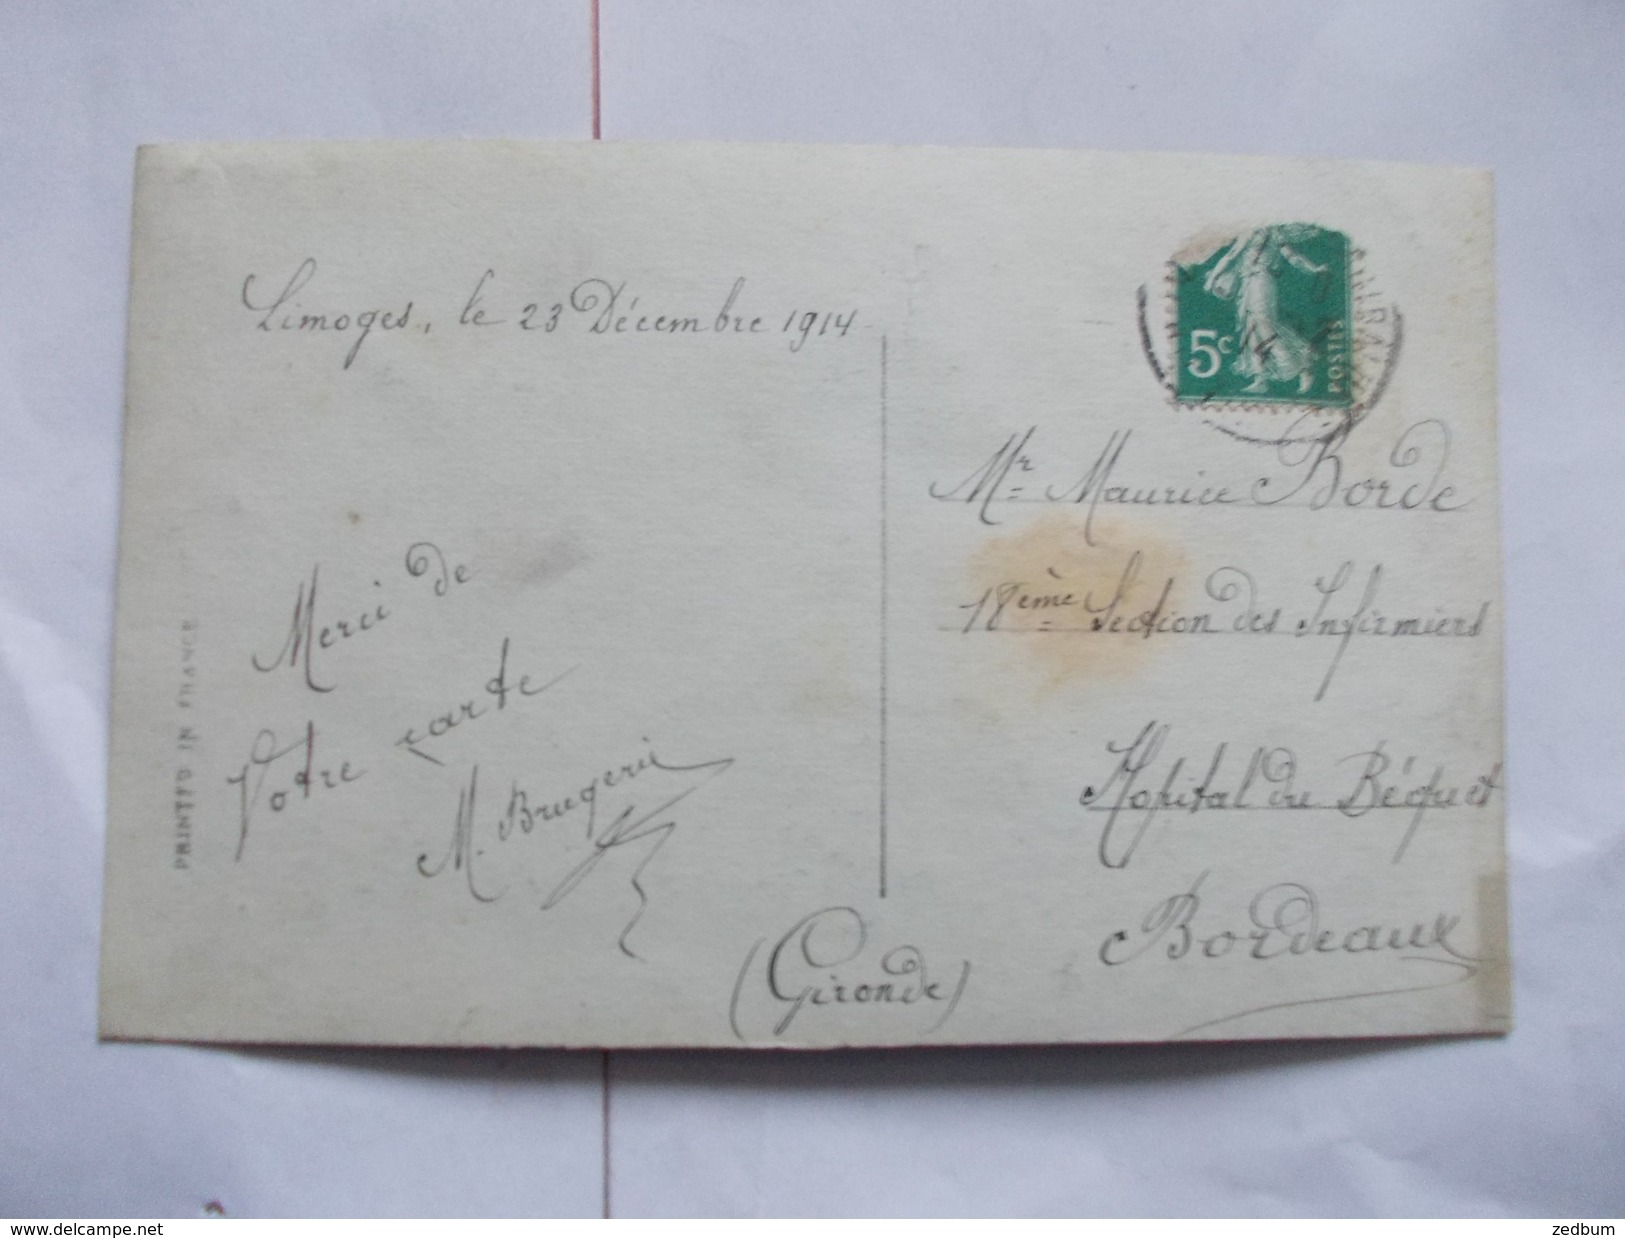 Limoges, le 23 Décembre 1914
Merci de
Votre carte
M. Brugerie
PRINTED IN FRANCE
5c
POSTES
14
Mr Maurice Borde
18ème Section des Infirmiers
Hopital du Béquet
Bordeaux
(Gironde)
www.delcampe.net
zedbum